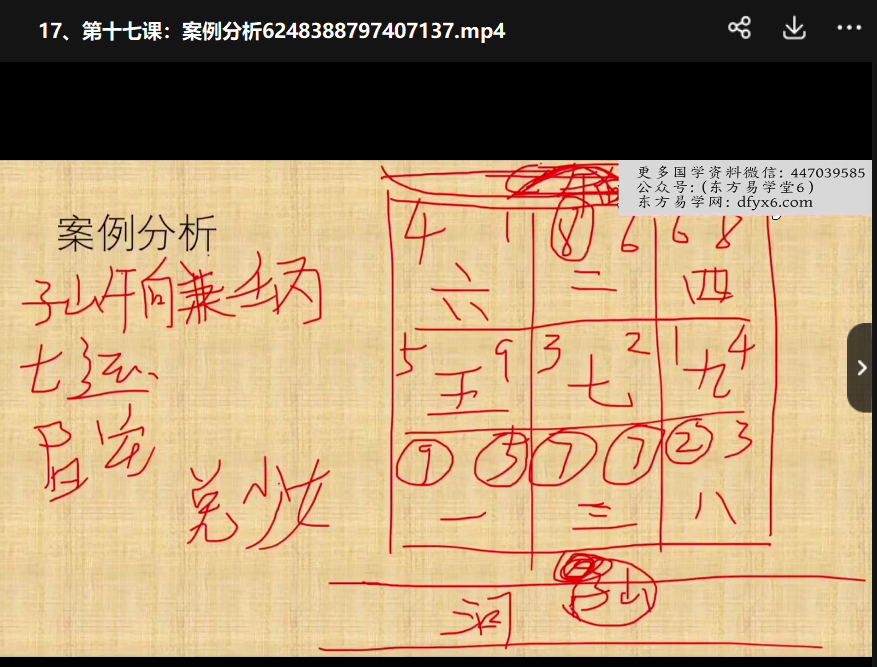 17、第十七课：案例分析6248388797407137.mp4
更多国学资料微信: 447039585
公众号:(东方易学堂6)
东方易学网: dfyx6.com
案例分析
子山午向兼壬丙
七运
阳宅
兑少女
4 1 8 6 6 8
六 二 四
5 9 3 2 1 4
五 七 九
9 5 7 7 2 3
一 三 八
子山
河